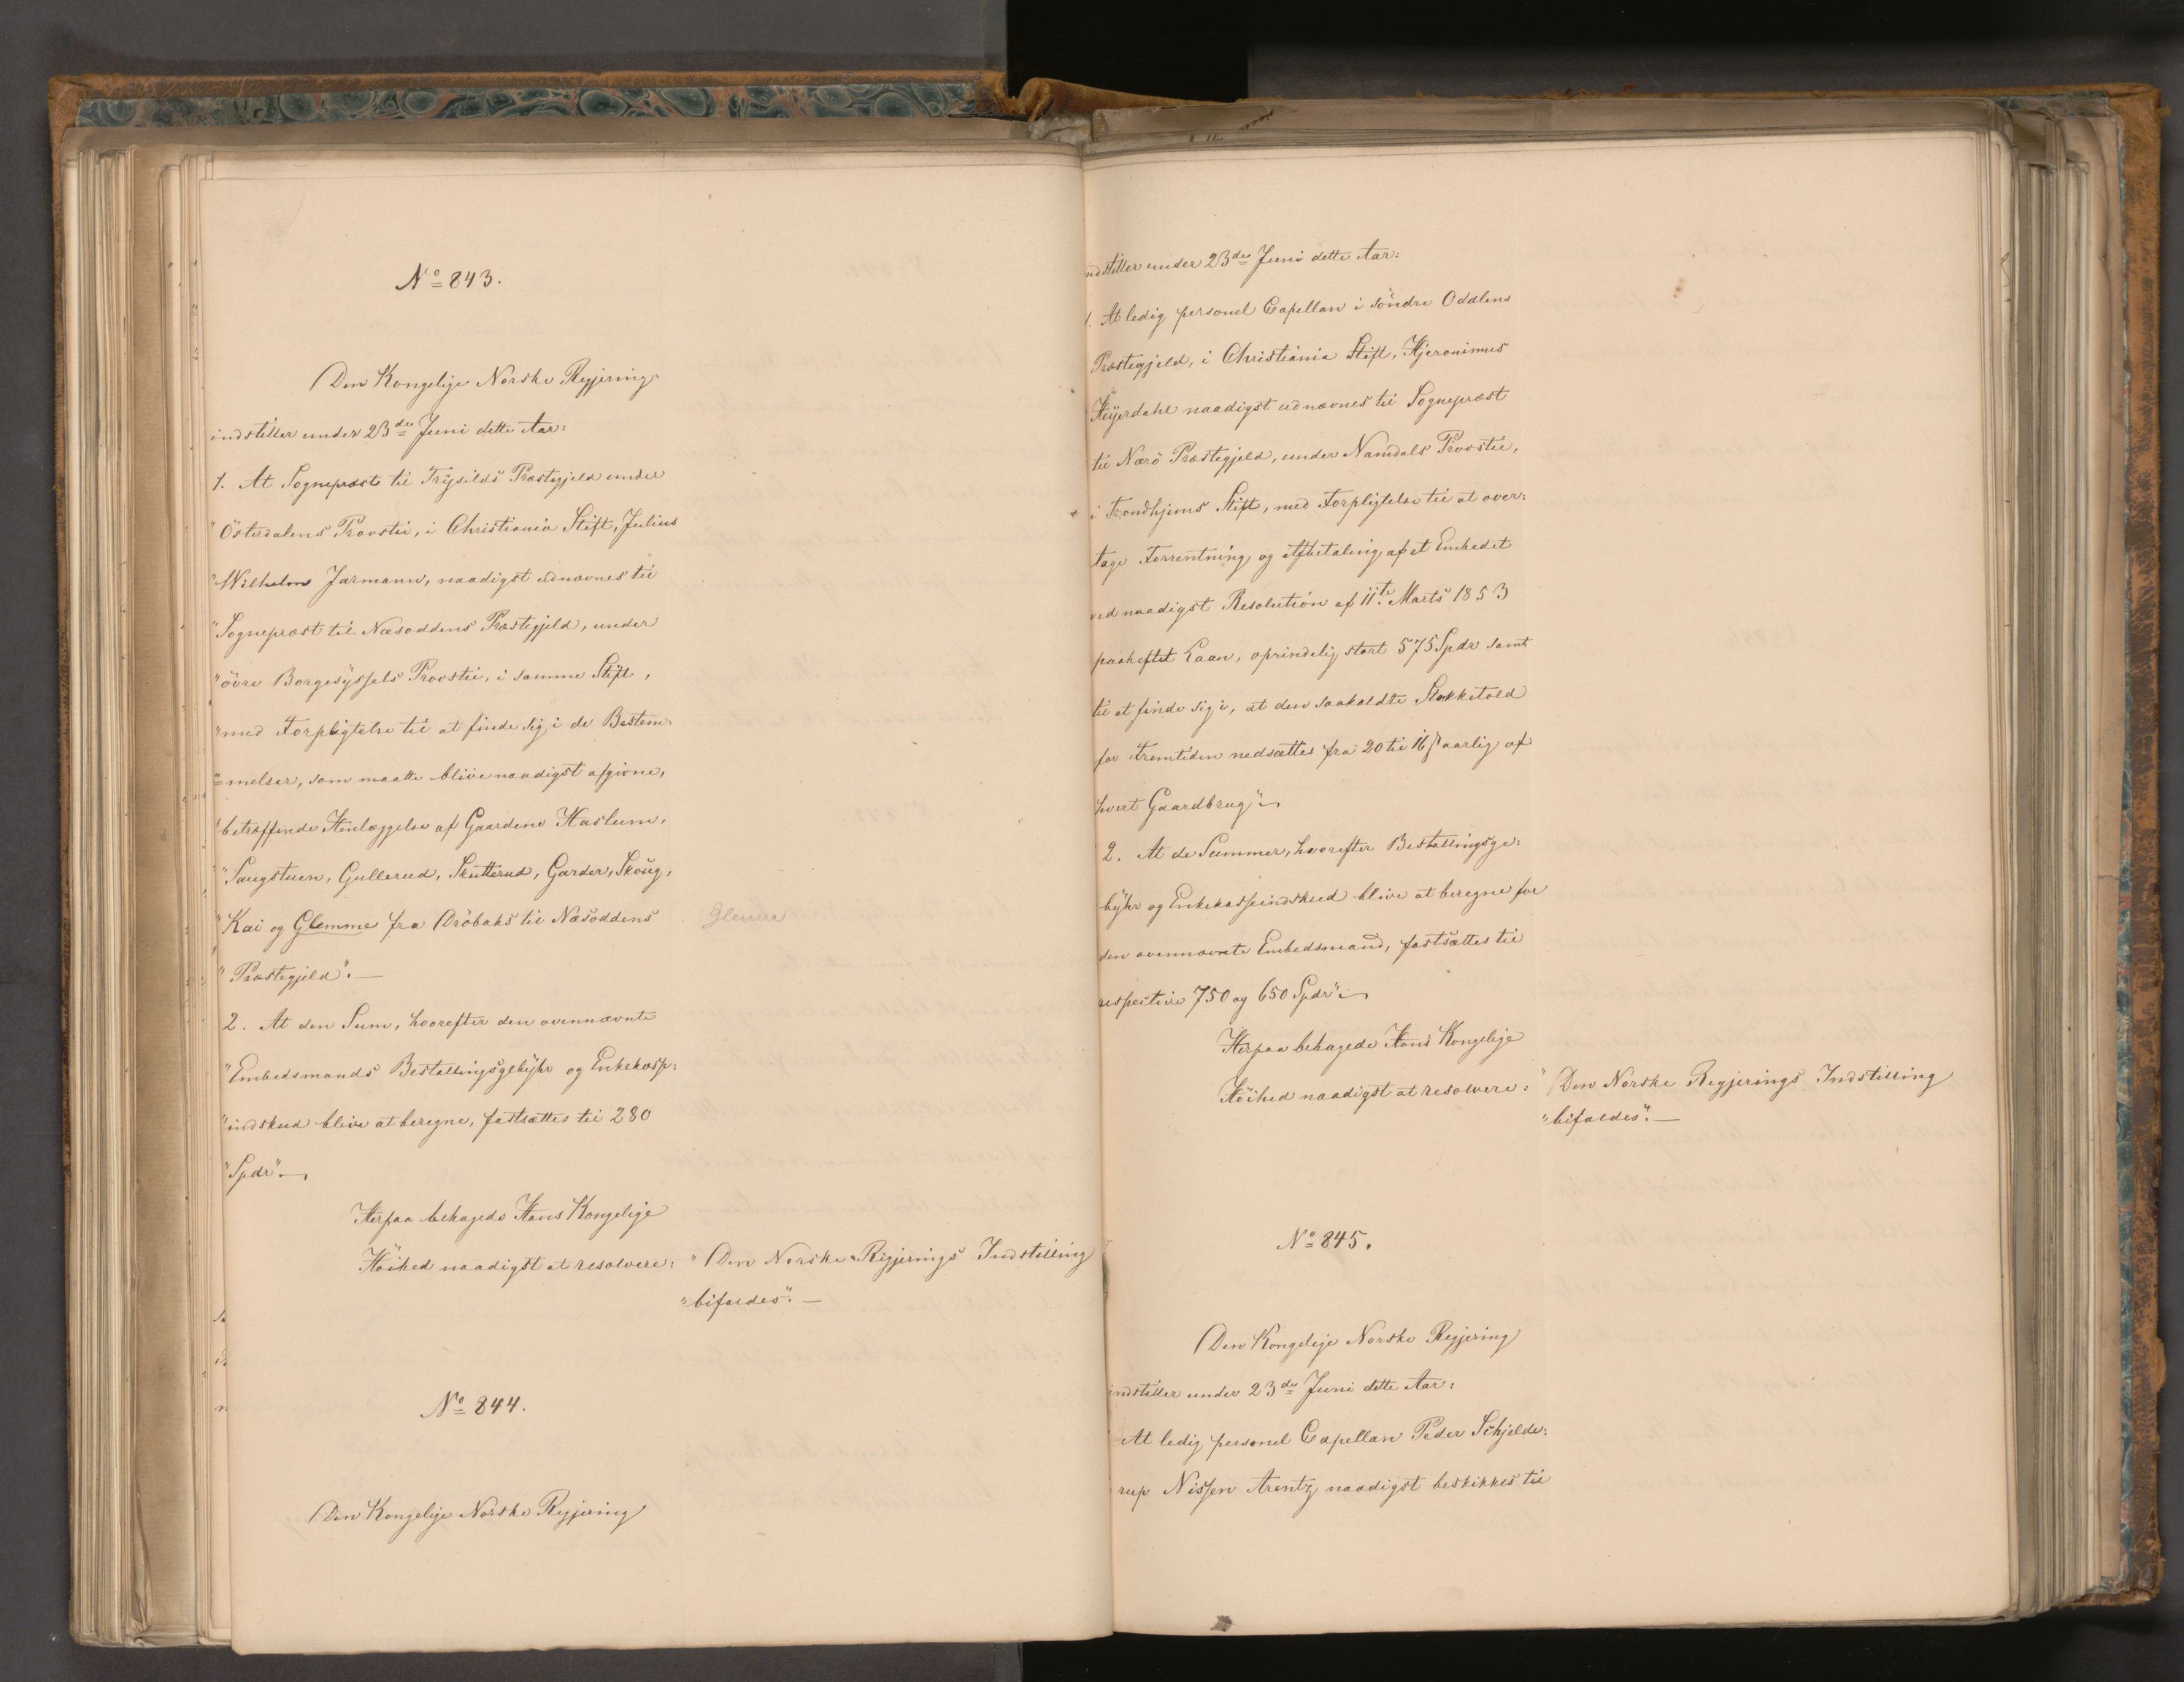 No 843.
Den Kongelige Norske Regjering
indstiller under 23de Juni dette Aar:
1. At Sognepræst til Trysilds Præstegjeld under
"Österdalens Provsti, i Christiania Stift, Julius
"Wilhelm Jarmann, naadigst udnævnes til
"Sognepræst til Næsoddens Præstegjeld, under
"övre Borgesyssels Provsti, i samme Stift,
"med Forpligtelse til at finde sig i de Bestem-
"melser, som maatte blive naadigst afgivne,
"betræffende Henlæggelse af Gaardene Haslum,
"Saugstuen, Gullerud, Skutterud, Garder, Skoug,
"Kai og Glemme fra Dröbaks til Næsoddens
Glenne
"Præstegjeld".—
2. At den Sum, hvorefter den ovennævnte
"Embedsmands Bestallingsgebyhr og Enkekasse:
"indskud blive at beregne, fastsættes til 280
"Spdr".—
Herpaa behagede Hans Kongelige
Höihed naadigst at resolvere: "Den Norske Regjerings Indstilling
"bifaldes".—
No 844.
Den Kongelige Norske Regjering
indstiller under 23de Juni dette Aar:
1. At ledig personel Capellan i söndre Odalens
Præstegjeld, i Christiania Stift, Hjeronimus
Heyerdahl naadigst udnævnes til Sognepræst
til Nærö Præstegjeld, under Namdals Provstie,
i Trondhjems Stift, med Forpligtelse til at over:
tage Forrentning og Afbetaling af et Embedet
ved naadigst Resolution af 11te Marts 1853
paaheftet Laan, oprindelig stort 575 Spdr samt
til at finde sig i, at den saakaldte Stokketold
for Fremtiden nedsættes fra 20 til 16 ß aarlig af
hvert Gaardbrug".—
2. At de Summer, hvorefter Bestallingsge:
byhr og Enkekasseindskud blive at beregne for
den ovennævnte Embedsmand, fastsættes til
respective 750 og 650 Spdr".—
Herpaa behagede Hans Kongelige
Höihed naadigst at resolvere: "Den Norske Regjerings Indstilling
"bifaldes".—
No 845.
Den Kongelige Norske Regjering
indstiller under 23de Juni dette Aar:
At ledig personel Capellan Peder Schjelde:
rup Nissen Arentz naadigst beskikkes til